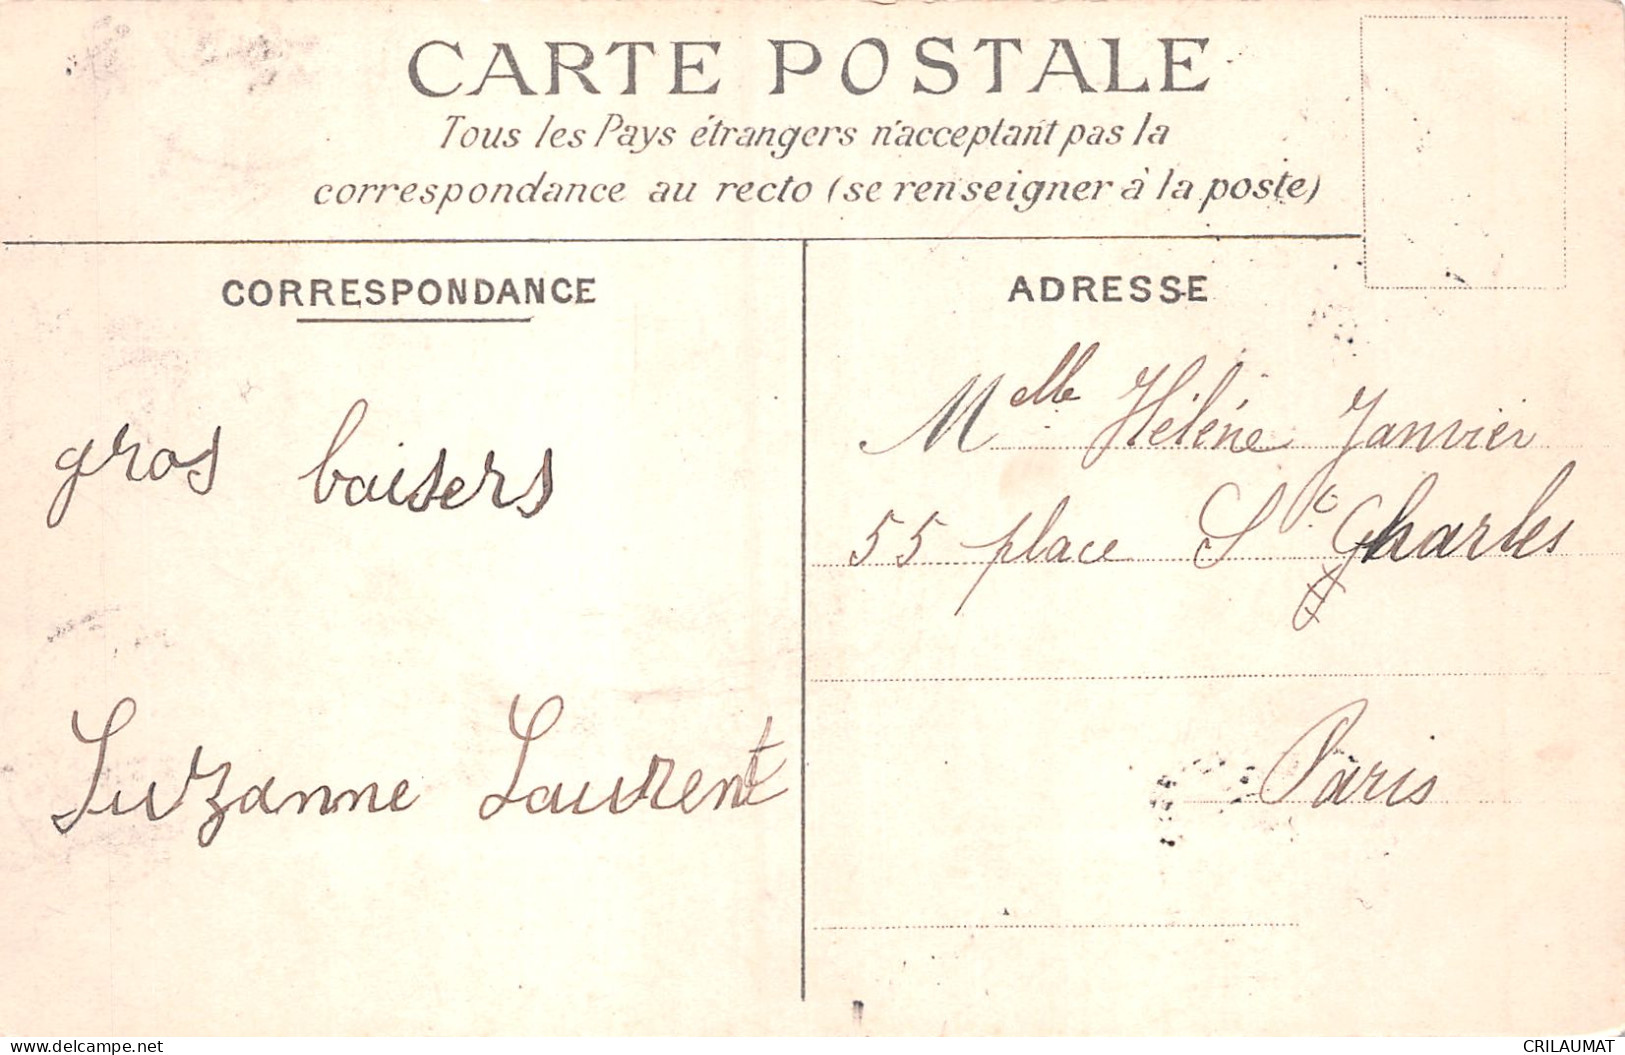 CARTE POSTALE
Tous les Pays étrangers n'acceptant pas la
correspondance au recto (se renseigner à la poste)
CORRESPONDANCE
gros baisers
Suzanne Laurent
ADRESSE
Melle Hélène Janvier
55 place St Charles
Paris
www.delcampe.net
CRILAUMAT